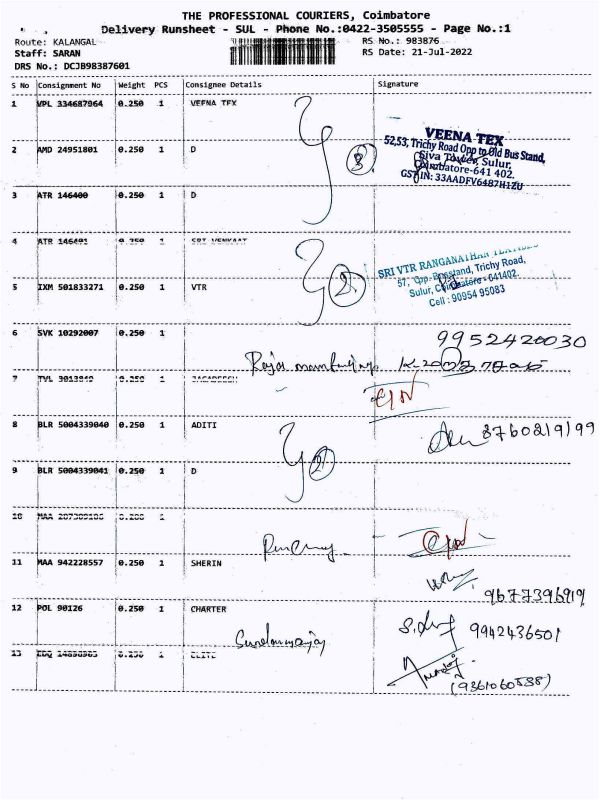 THE PROFESSIONAL COURIERS, Coimbatore
Delivery Runsheet - SUL - Phone No.:0422-3505555 - Page No.:1
Route: KALANGAL RS No.: 983876
Staff: SARAN RS Date: 21-Jul-2022
DRS No.: DCJB98387601
S No Consignment No Weight PCS Consignee Details Signature
1 VPL 334687964 0.250 1 VEENA TEX
VEENA TEX
52,53, Trichy Road Opp to Old Bus Stand,
Siva Tower, Sulur,
Coimbatore-641 402.
GSTIN: 33AADFV6487H1ZU
2 AMD 24951801 0.250 1 D
3
3 ATR 146400 0.250 1 D
4 ATR 146401 0.250 1 SRI VENKAAT
SRI VTR RANGANATHAR
57, Opp. Busstand, Trichy Road,
Sulur, Coimbatore-641402.
Cell : 90954 95083
2
5 IXM 501833271 0.250 1 VTR
6 SVK 10292007 0.250 1
9952420030
7 TVL 0.250 1 JAGADEESH
8 BLR 5004339040 0.250 1 ADITI
8760219199
2
9 BLR 5004339041 0.250 1 D
10 MAA 0.200 1
11 MAA 942228557 0.250 1 SHERIN
9677396919
12 POL 90126 0.250 1 CHARTER
9942436501
13 EDQ 0.250 1 ELITE